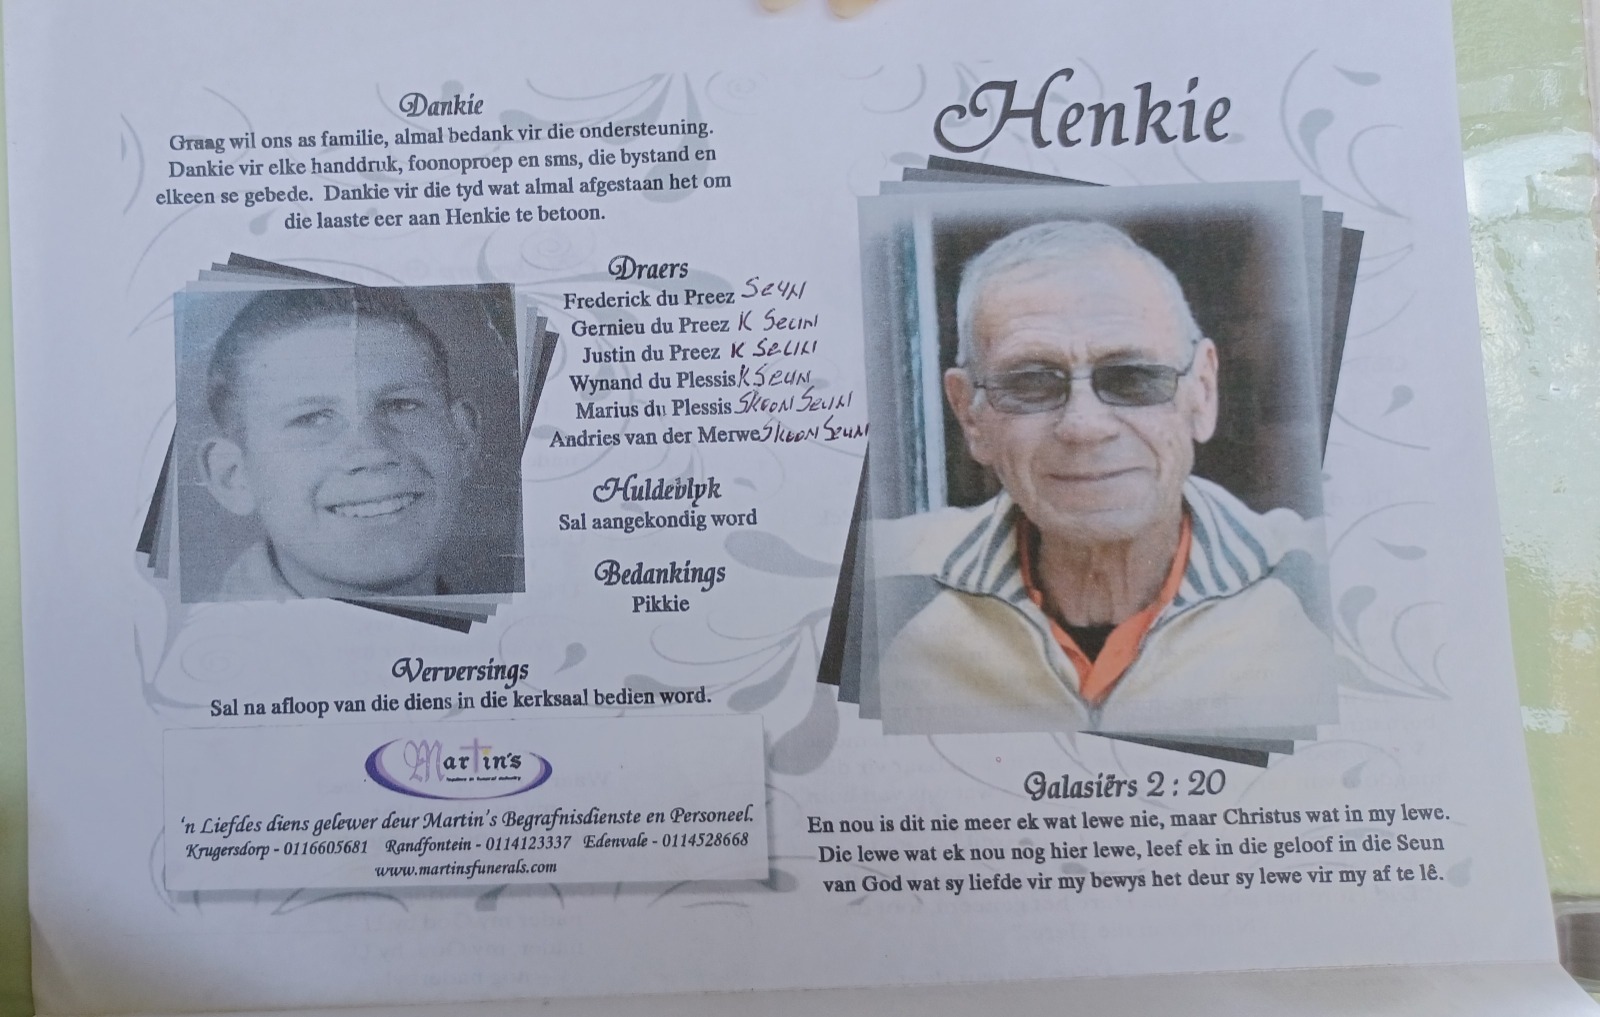 Dankie
Graag wil ons as familie, almal bedank vir die ondersteuning.
Dankie vir elke handdruk, foonoproep en sms, die bystand en
elkeen se gebede. Dankie vir die tyd wat almal afgestaan het om
die laaste eer aan Henkie te betoon.
Draers
Frederick du Preez Seun
Gernieu du Preez K Seun
Justin du Preez K Seun
Wynand du Plessis K Seun
Marius du Plessis Skoon Seun
Andries van der Merwe Skoon Seun
Huldeblyk
Sal aangekondig word
Bedankings
Pikkie
Verversings
Sal na afloop van die diens in die kerksaal bedien word.
Martin's
'n Liefdes diens gelewer deur Martin's Begrafnisdienste en Personeel.
Krugersdorp - 0116605681 Randfontein - 0114123337 Edenvale - 0114528668
www.martinsfunerals.com
Henkie
Galasiërs 2 : 20
En nou is dit nie meer ek wat lewe nie, maar Christus wat in my lewe.
Die lewe wat ek nou nog hier lewe, leef ek in die geloof in die Seun
van God wat sy liefde vir my bewys het deur sy lewe vir my af te lê.